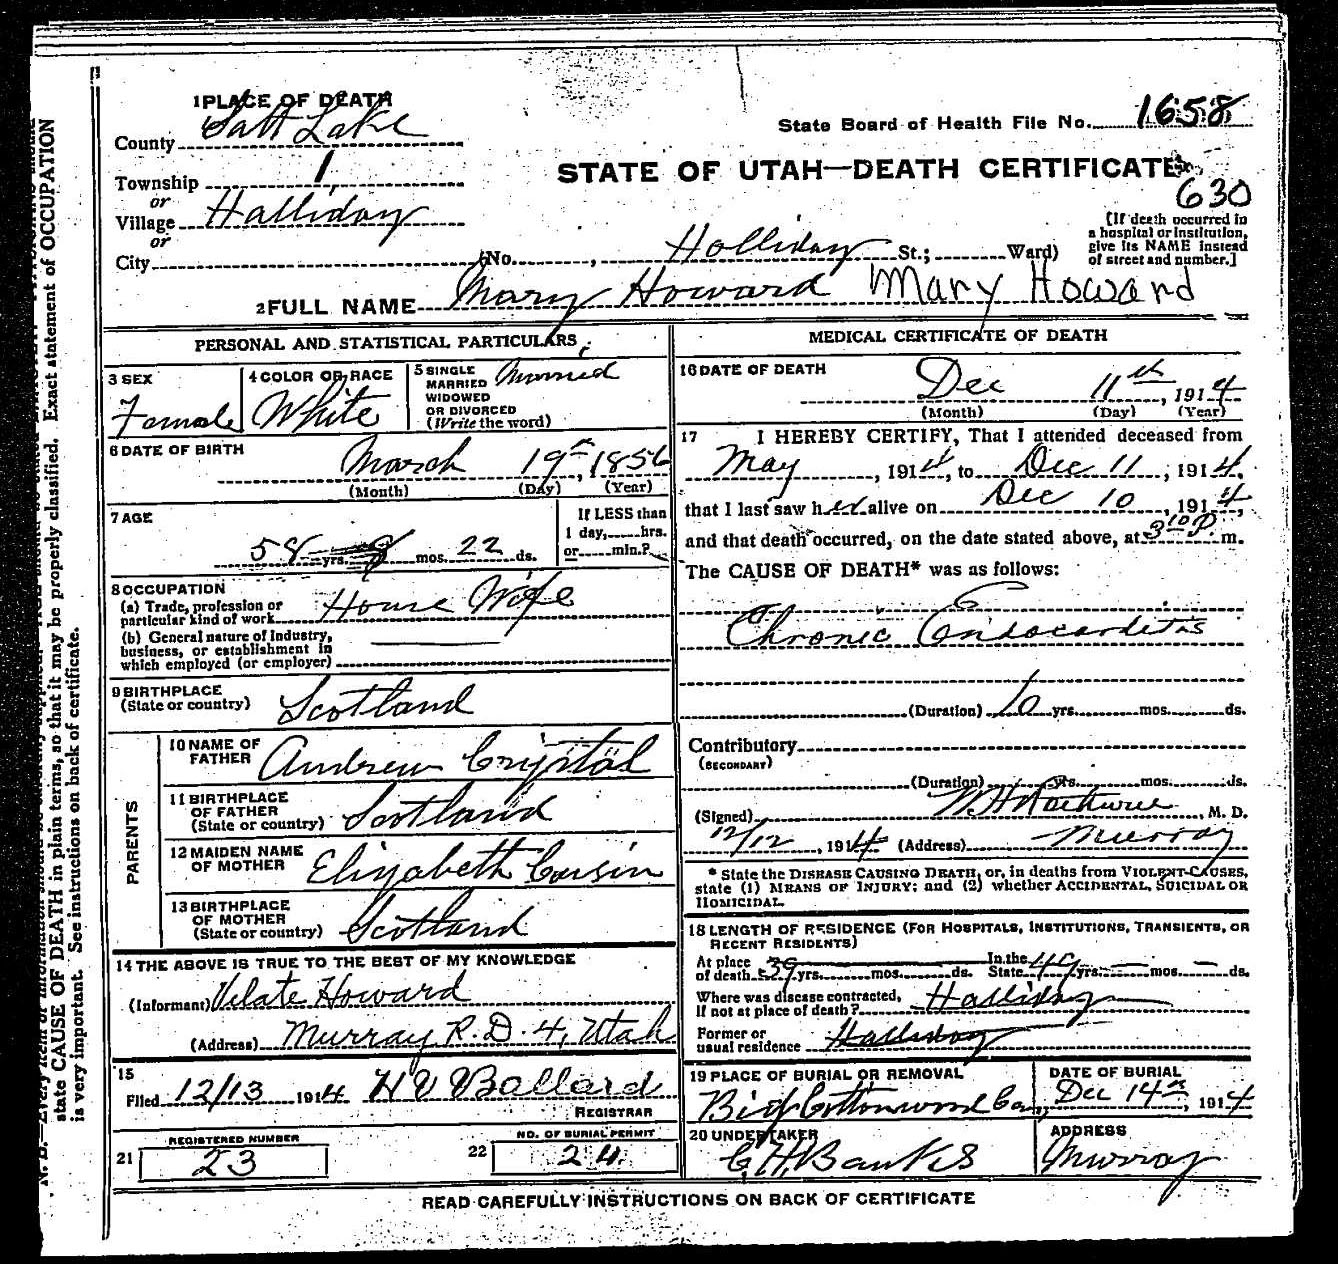 1 PLACE OF DEATH
County Salt Lake
State Board of Health File No. 1658
Township 1
or
Village Halliday
or
City
STATE OF UTAH—DEATH CERTIFICATE
630
(No. , Holliday St.; Ward)
[If death occurred in
a hospital or institution,
give its NAME instead
of street and number.]
2 FULL NAME Mary Howard Mary Howard
PERSONAL AND STATISTICAL PARTICULARS
3 SEX
Female
4 COLOR OR RACE
White
5 SINGLE
MARRIED
WIDOWED
OR DIVORCED
(Write the word)
Married
6 DATE OF BIRTH
March 19th, 1856
(Month) (Day) (Year)
7 AGE
58 yrs. 8 mos. 22 ds.
If LESS than
1 day, hrs.
or min.?
8 OCCUPATION
(a) Trade, profession or
particular kind of work House Wife
(b) General nature of Industry,
business, or establishment in
which employed (or employer)
9 BIRTHPLACE
(State or country) Scotland
PARENTS
10 NAME OF
FATHER Andrew Crystal
11 BIRTHPLACE
OF FATHER
(State or country) Scotland
12 MAIDEN NAME
OF MOTHER Elizabeth Cousin
13 BIRTHPLACE
OF MOTHER
(State or country) Scotland
14 THE ABOVE IS TRUE TO THE BEST OF MY KNOWLEDGE
(Informant) Vilate Howard
(Address) Murray R.D. 4, Utah
15
Filed 12/13 1914 H V Ballard
REGISTRAR
21 REGISTERED NUMBER
23
22 NO. OF BURIAL PERMIT
24
MEDICAL CERTIFICATE OF DEATH
16 DATE OF DEATH
Dec 11th, 1914
(Month) (Day) (Year)
17 I HEREBY CERTIFY, That I attended deceased from
May , 1914, to Dec 11, 1914,
that I last saw her alive on Dec 10, 1914,
and that death occurred, on the date stated above, at 3 10 P. m.
The CAUSE OF DEATH* was as follows:
Chronic Endocarditis
(Duration) 10 yrs. mos. ds.
Contributory
(SECONDARY)
(Duration) yrs. mos. ds.
(Signed) , M. D.
12/12, 1914 (Address) Murray
* State the DISEASE CAUSING DEATH, or, in deaths from VIOLENT CAUSES,
state (1) MEANS OF INJURY; and (2) whether ACCIDENTAL, SUICIDAL OR
HOMICIDAL.
18 LENGTH OF RESIDENCE (FOR HOSPITALS, INSTITUTIONS, TRANSIENTS, OR
RECENT RESIDENTS)
At place
of death 39 yrs. mos. ds. In the State 49 yrs. — mos. — ds.
Where was disease contracted,
If not at place of death? Halliday
Former or
usual residence Halliday
19 PLACE OF BURIAL OR REMOVAL
Big Cottonwood Cem,
DATE OF BURIAL
Dec 14th, 1914
20 UNDERTAKER
C. H. Banks
ADDRESS
Murray
READ CAREFULLY INSTRUCTIONS ON BACK OF CERTIFICATE
N. B.—Every item of information should be
state CAUSE OF DEATH in plain terms, so that it may be properly classified. Exact statement of OCCUPATION
is very important. See instructions on back of certificate.